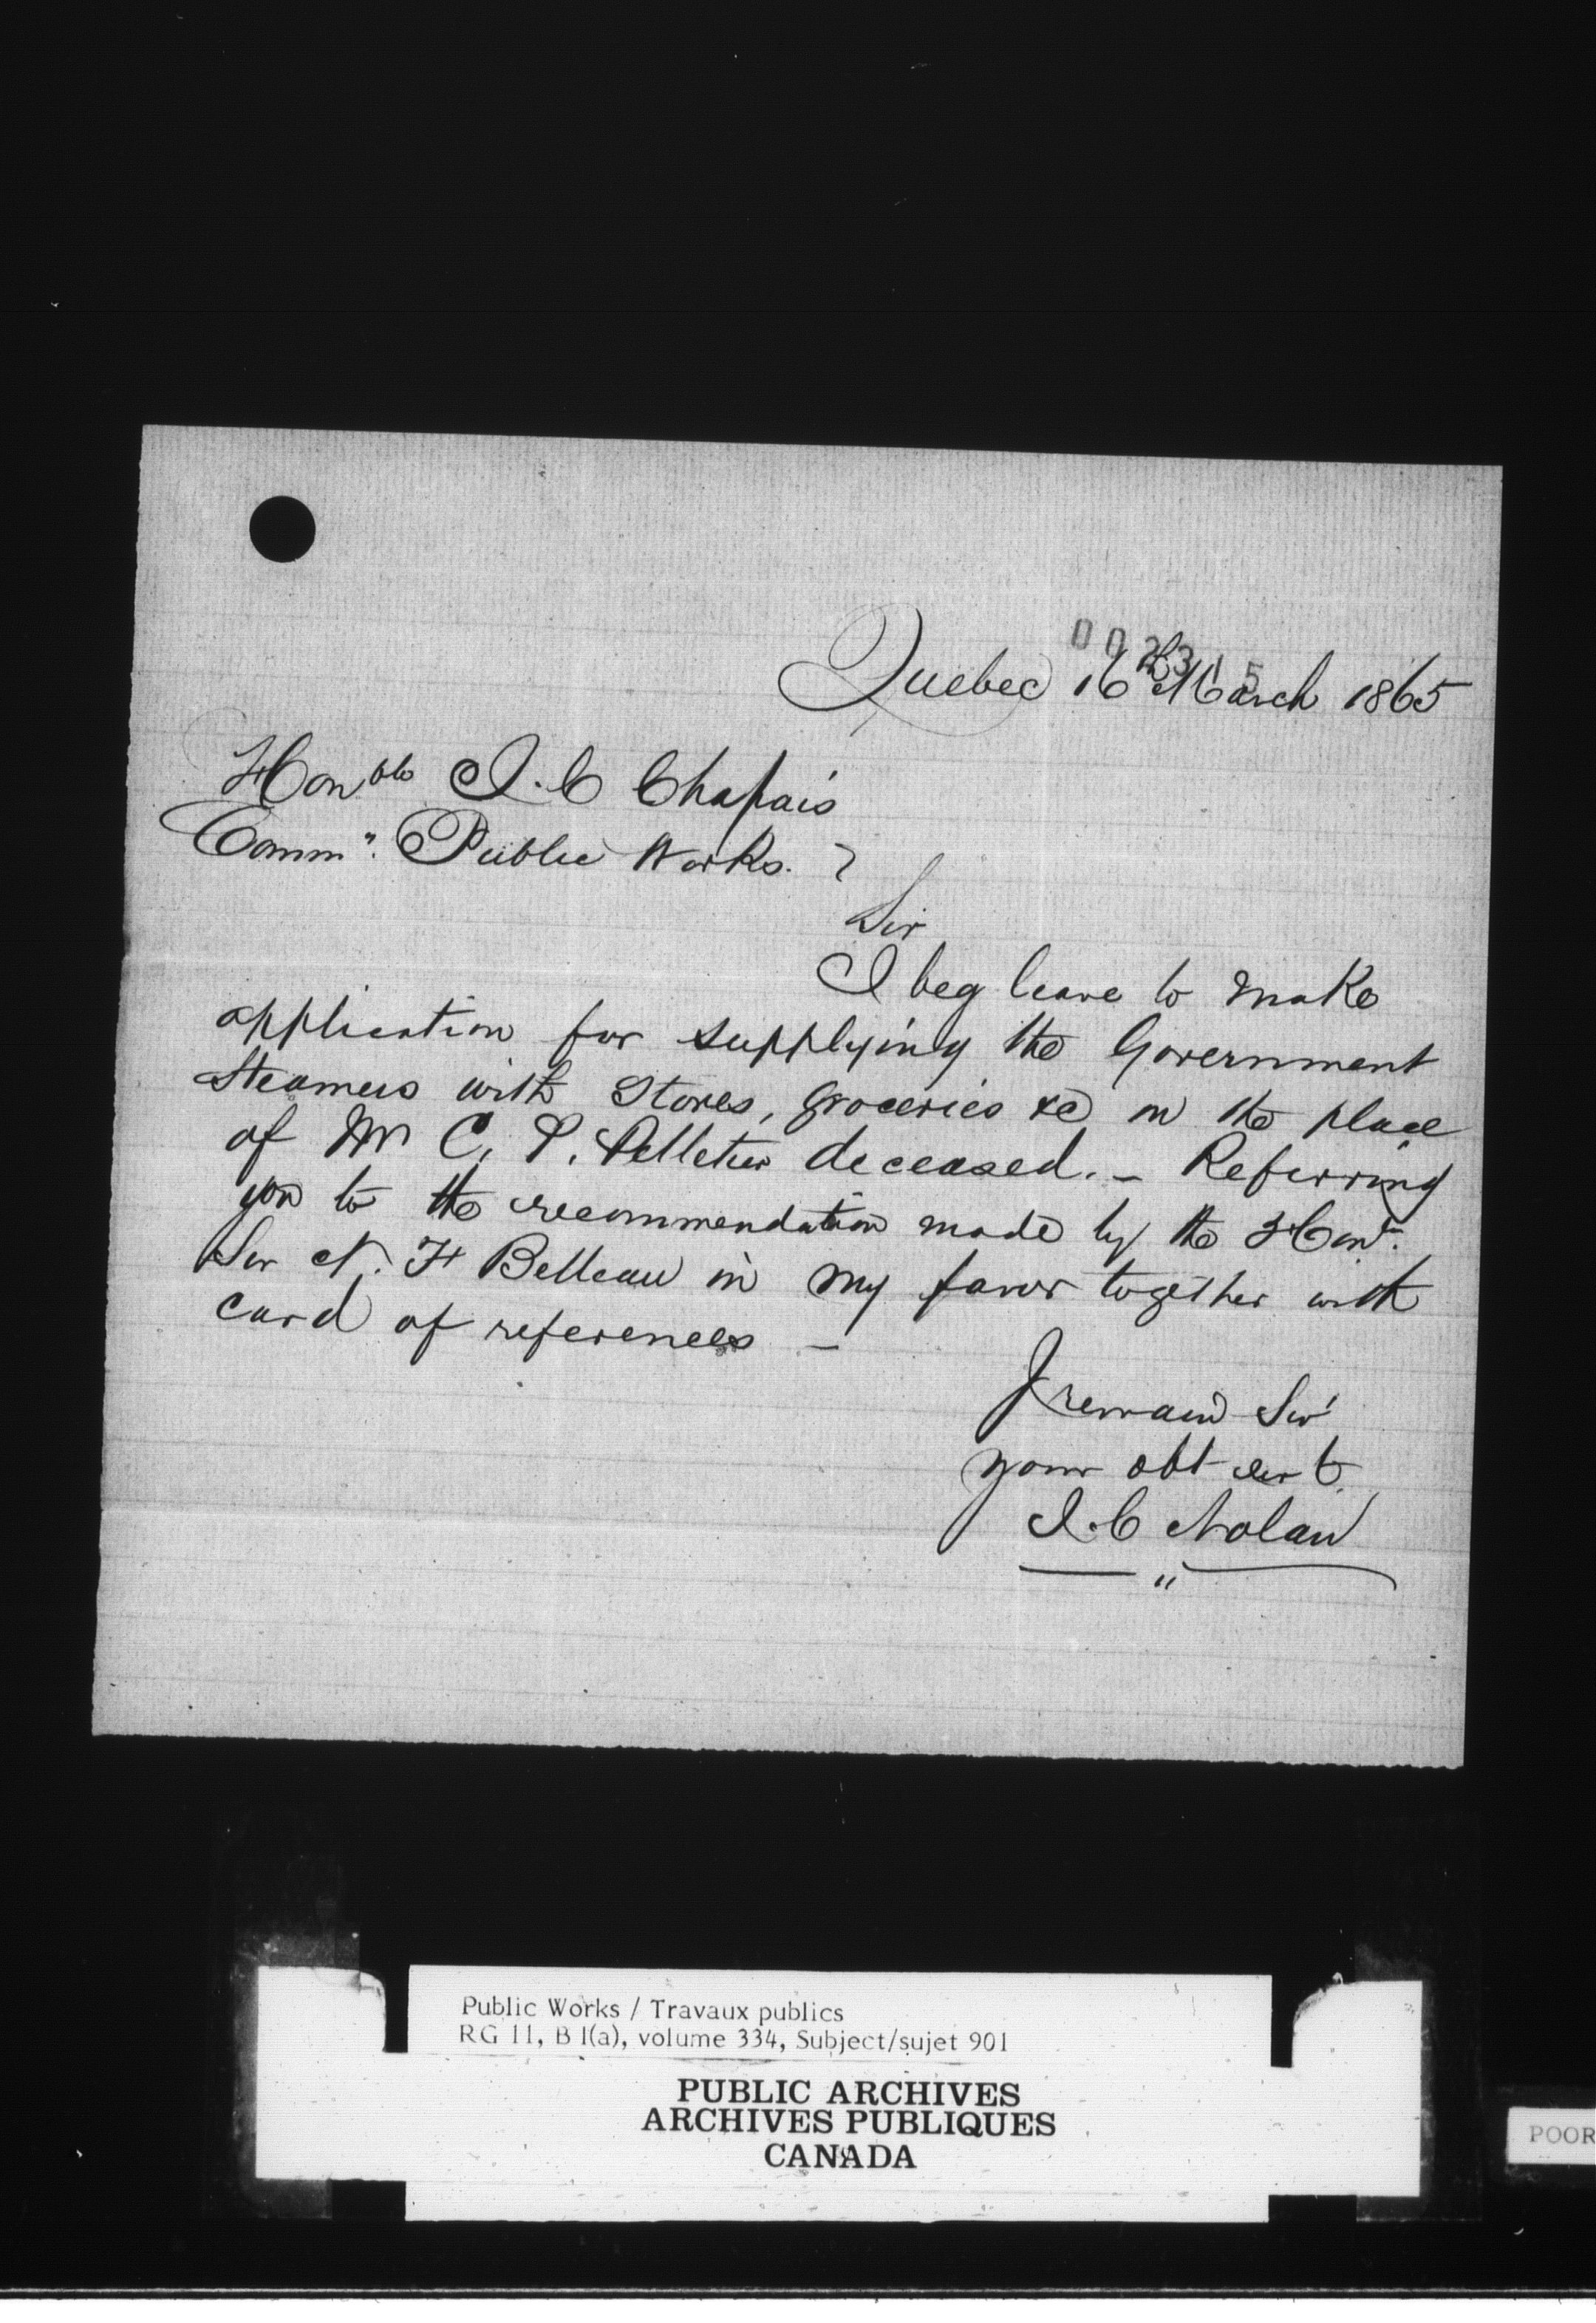 002315
Quebec 16th March 1865
Honble J. C Chapais
Commr. Public Works.
Sir
I beg leave to make
application for supplying the Government
Steamers with Stores, groceries &c in the place
of Mr C. P. Pelletier deceased. - Referring
you to the recommendation made by the Honr.
Sir N. F Belleau in my favor together with
card of references -
I remain Sir
your obt servt.
J. C Nolan
Public Works / Travaux publics
RG 11, B 1(a), volume 334, Subject/sujet 901
PUBLIC ARCHIVES
ARCHIVES PUBLIQUES
CANADA
POOR